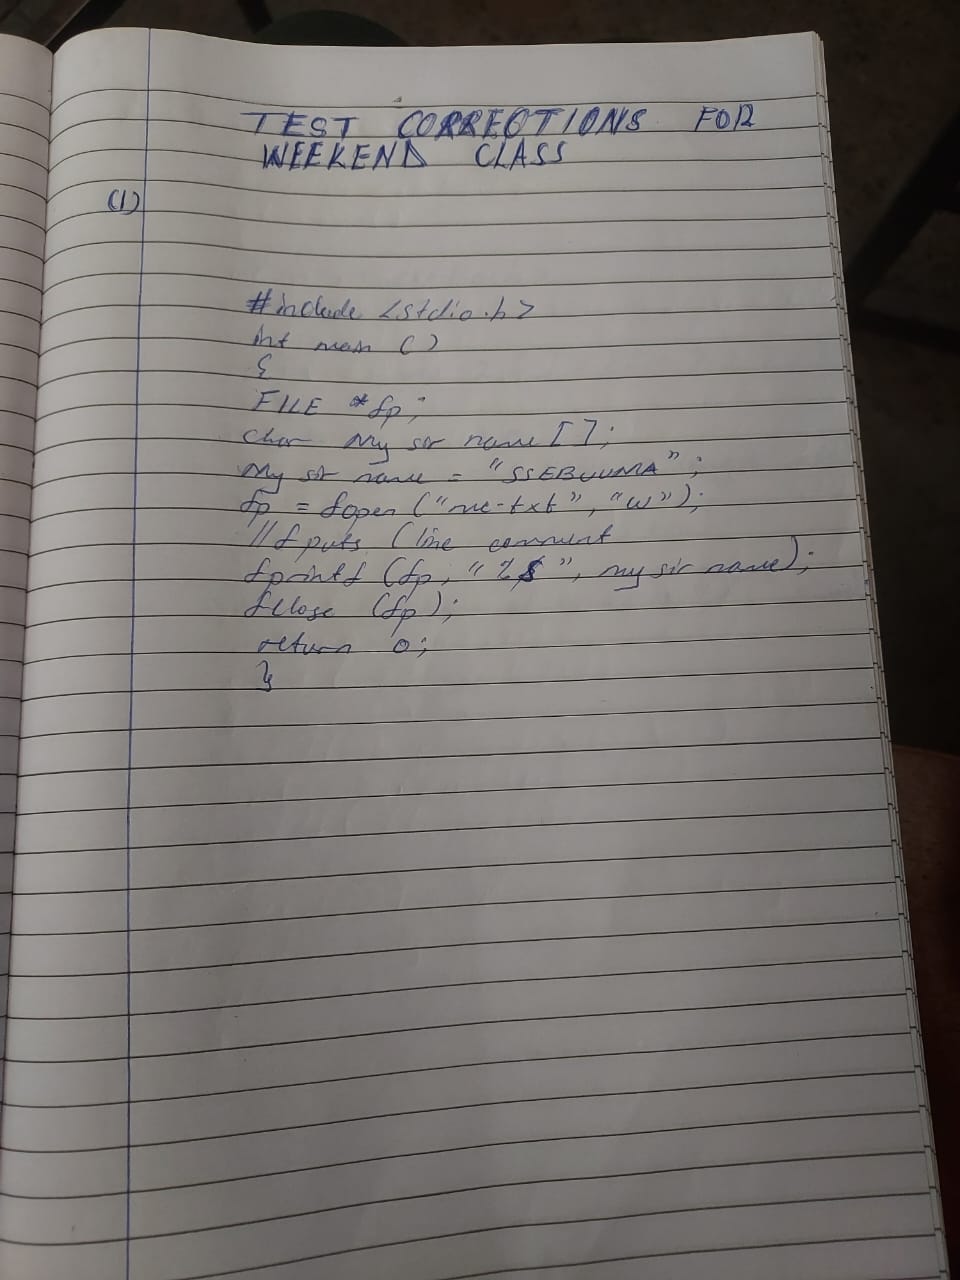 TEST CORRECTIONS FOR
WEEKEND CLASS
(1)
#include <stdio.h>
int main ()
{
FILE *fp;
char my sir name [ ];
my sir name = "SSEBUUMA";
fp = fopen ("me-txt", "w");
//fputs (line comment
fprintf (fp, "%s", my sir name);
fclose (fp);
return 0;
}